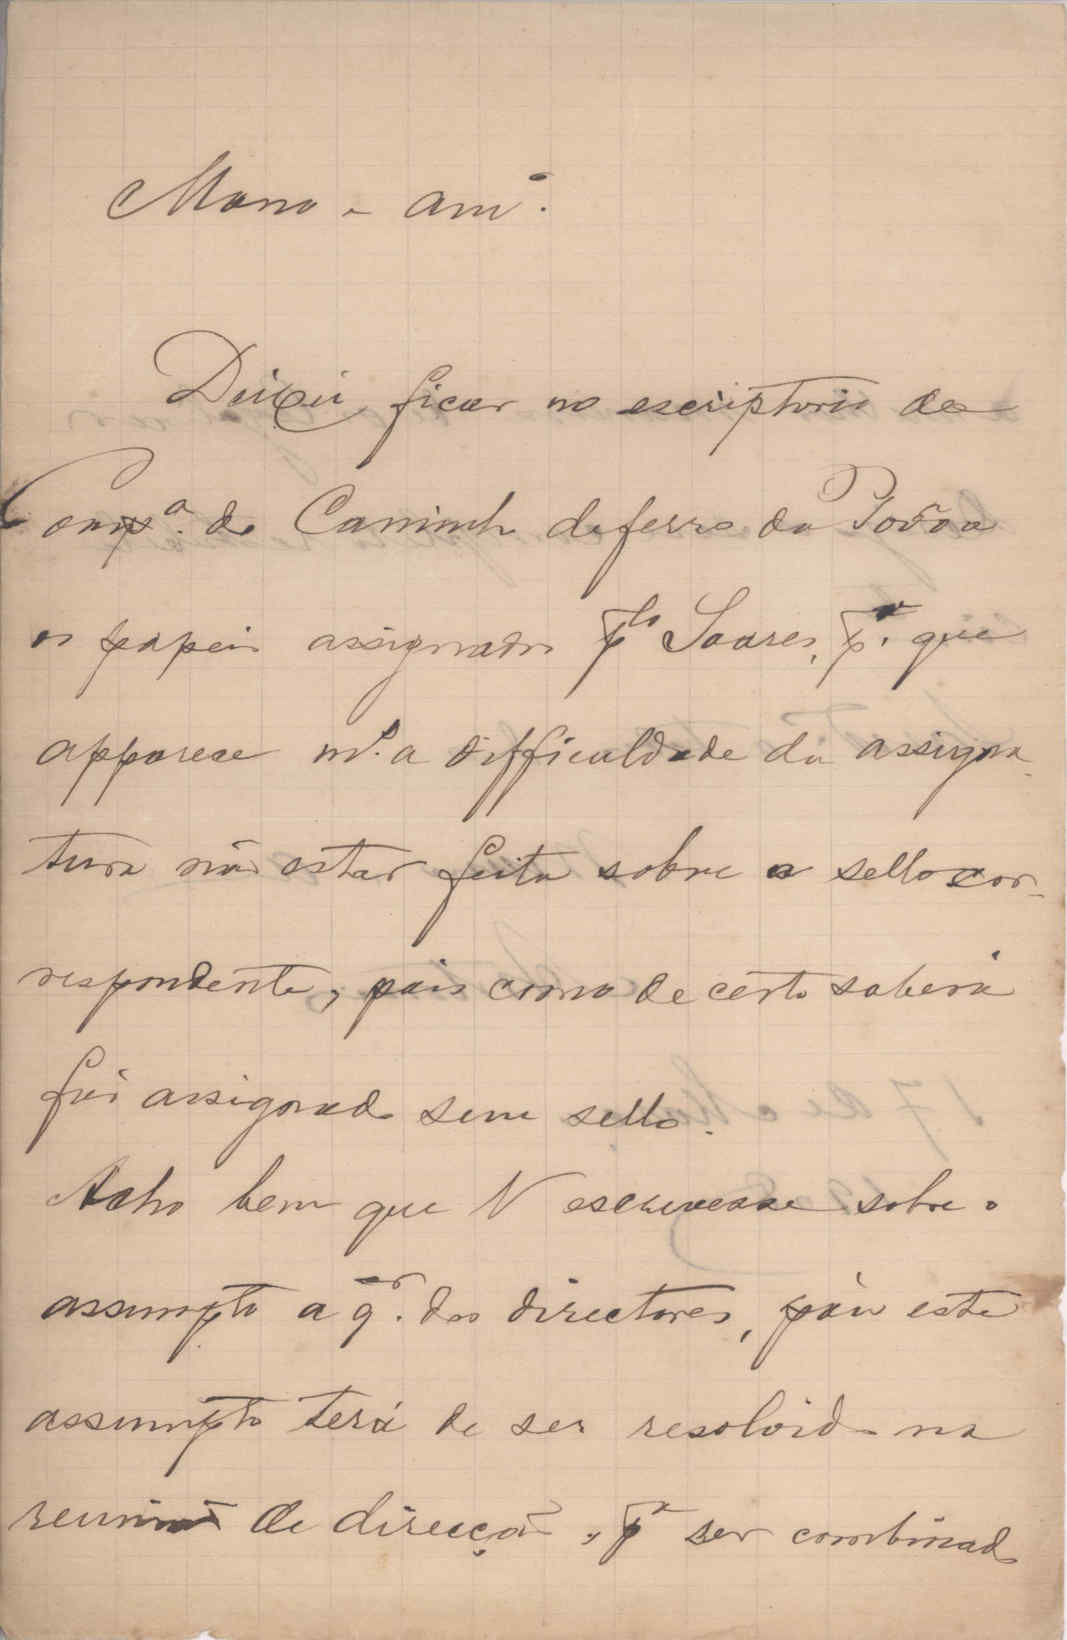 Mano e amº.
Deixei ficar no escriptorio da
Compª. do Caminho de ferro da Povoa
os papeis assignados plo Soares, pª. que
apparece m.ª a difficuldade da assigna-
tura não estar feita sobre o sello cor-
respondente, pois como de certo saberá
foi assignado sem sello.
Acho bem que V escrevesse sobre o
assumpto a qr. dos directores, pois este
assumpto terá de ser resolvido na
reunião de direcção, pª ser combinado